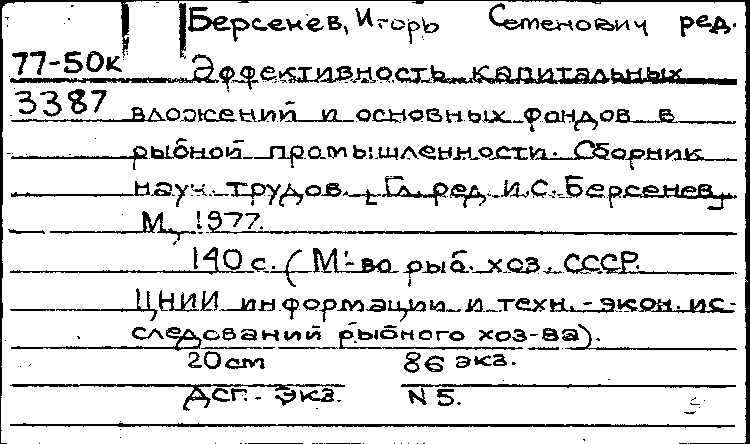 Берсенев, Игорь Семенович ред.
77-50к Эффективность капитальных
3387 вложений и основных фондов в
рыбной промышленности. Сборник
науч. трудов. [Гл. ред. И.С. Берсенев]
М., 1977.
140 с. (М-во рыб. хоз. СССР.
ЦНИИ информации и техн.-экон. ис-
следований рыбного хоз-ва).
20 cm 86 экз.
ДСП.- Экз. N 5.